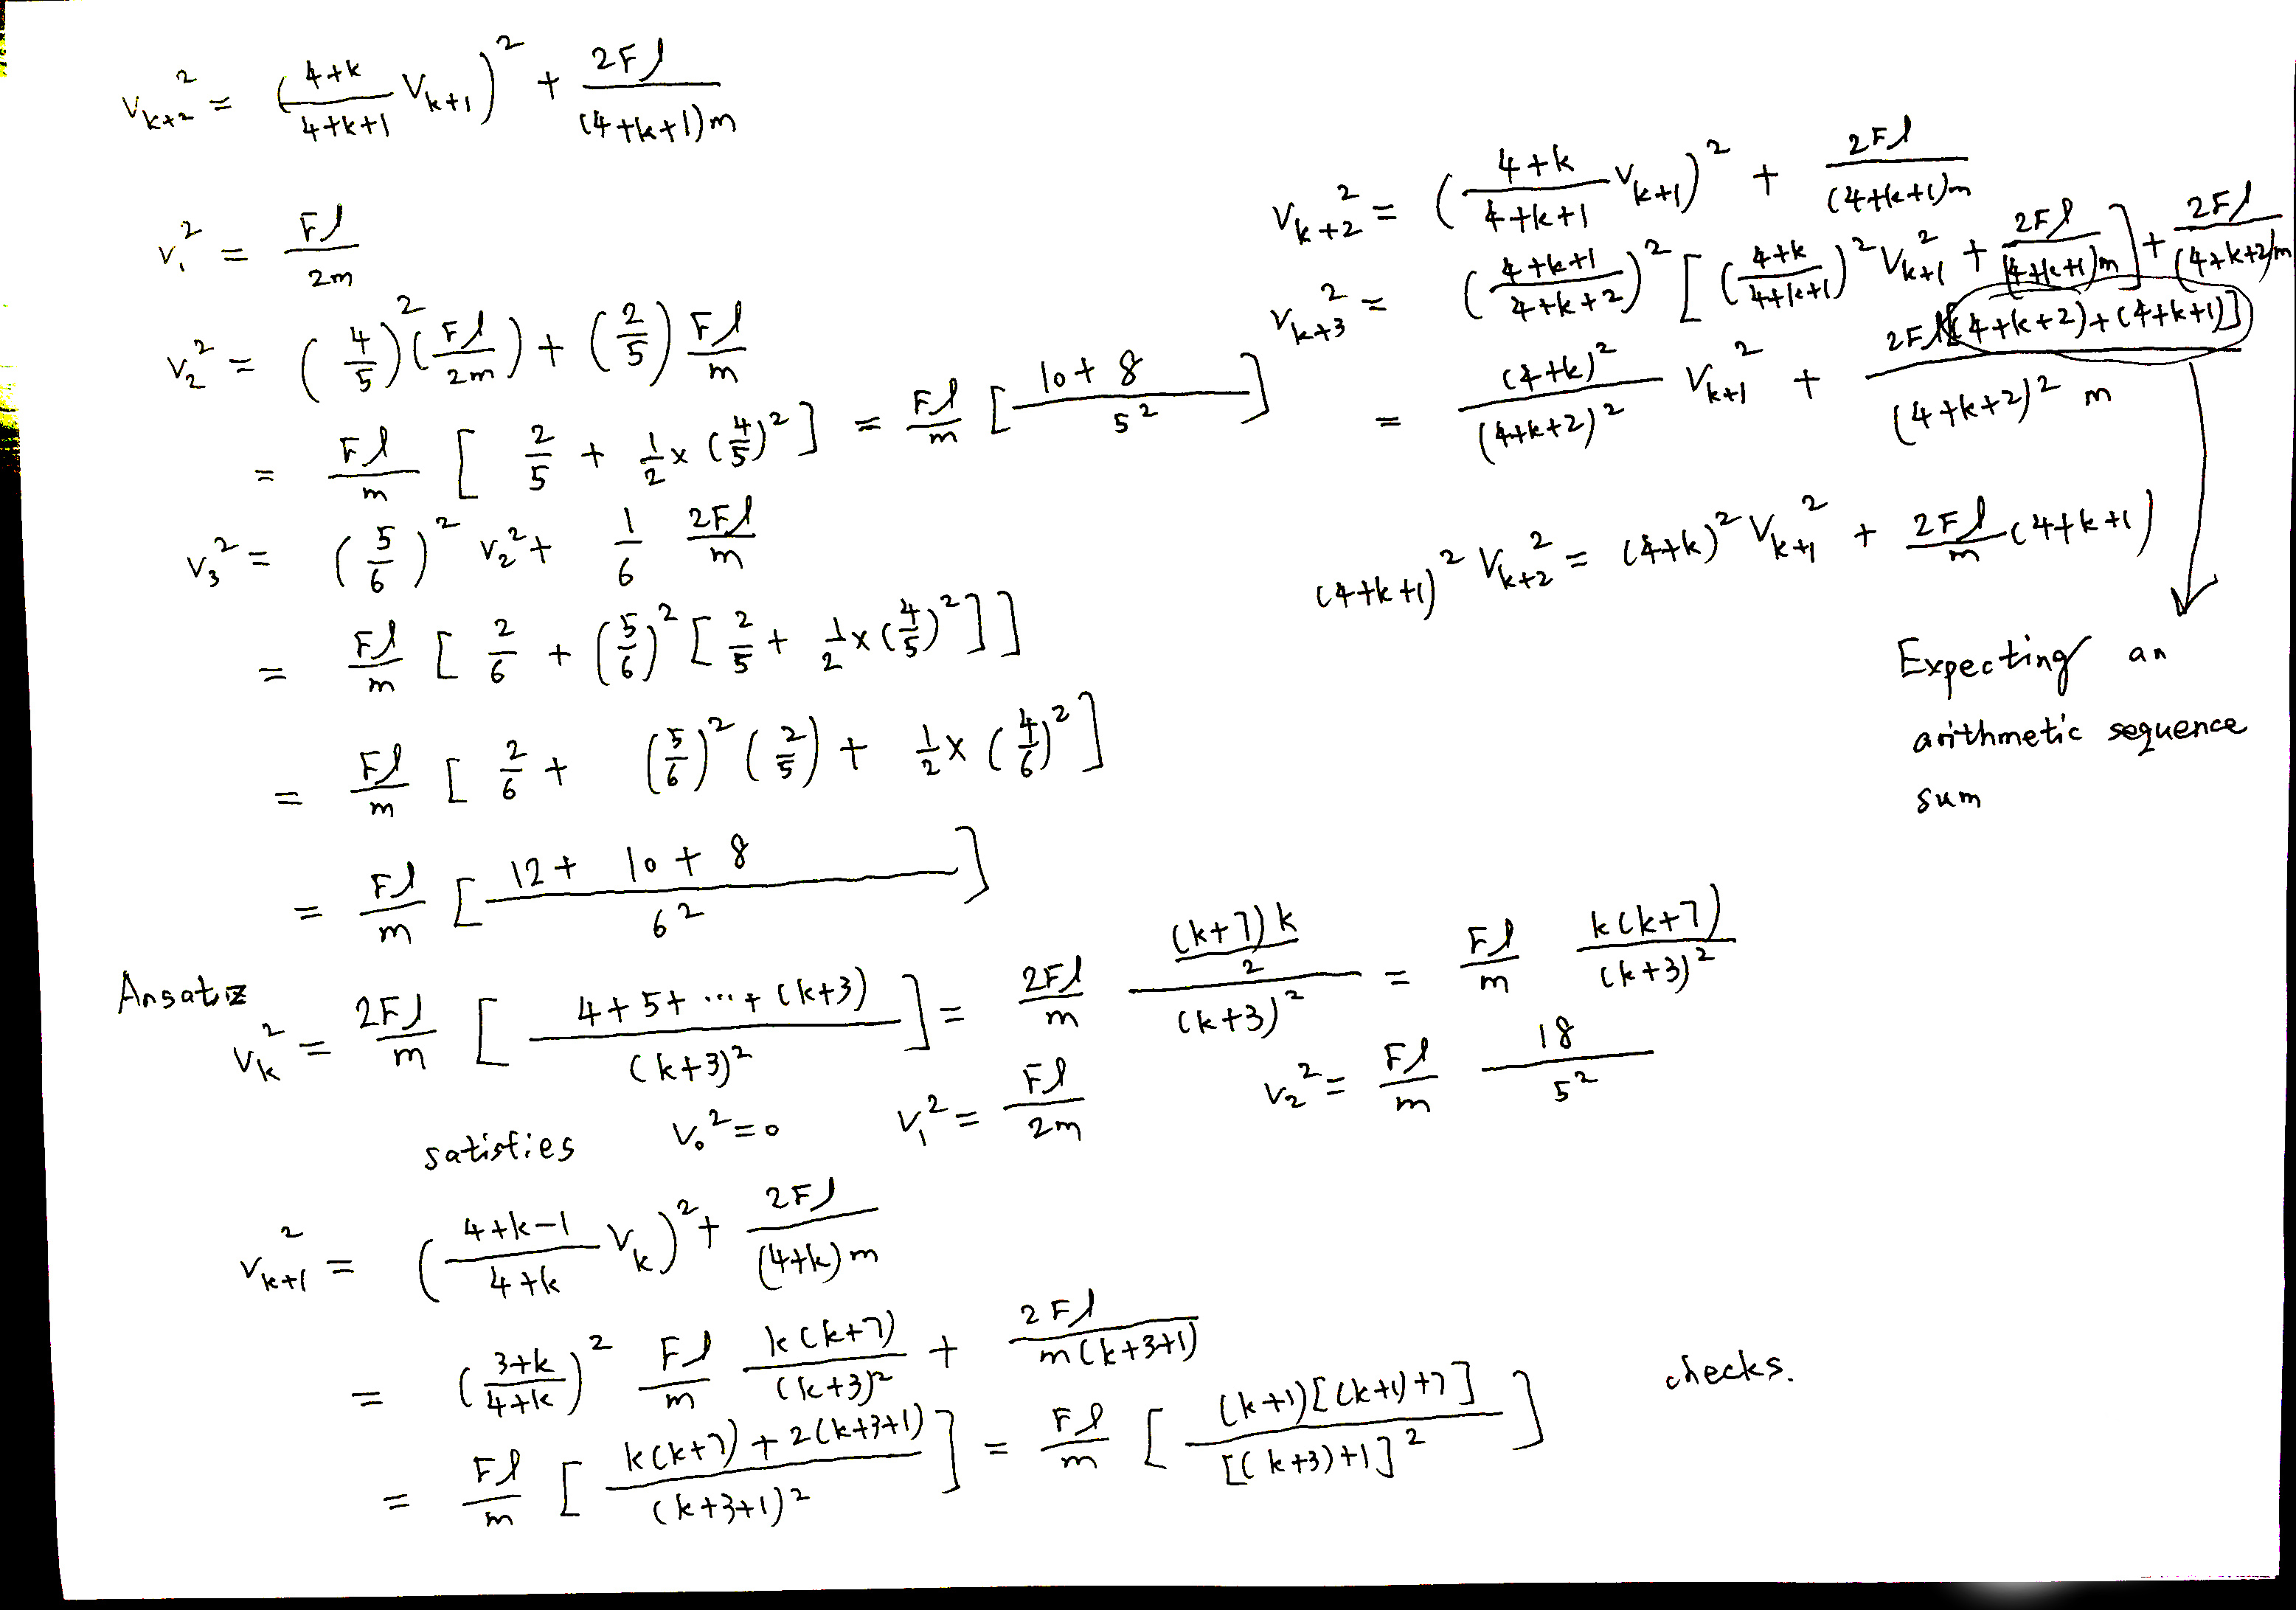 v_{k+2}^2 = (\frac{4+k}{4+k+1} v_{k+1})^2 + \frac{2Fl}{(4+k+1)m}
v_1^2 = \frac{Fl}{2m}
v_2^2 = (\frac{4}{5})^2 (\frac{Fl}{2m}) + (\frac{2}{5}) \frac{Fl}{m}
= \frac{Fl}{m} [ \frac{2}{5} + \frac{1}{2} × (\frac{4}{5})^2 ] = \frac{Fl}{m} [ \frac{10+8}{5^2} ]
v_3^2 = (\frac{5}{6})^2 v_2^2 + \frac{1}{6} \frac{2Fl}{m}
= \frac{Fl}{m} [ \frac{2}{6} + (\frac{5}{6})^2 [ \frac{2}{5} + \frac{1}{2} × (\frac{4}{5})^2 ] ]
= \frac{Fl}{m} [ \frac{2}{6} + (\frac{5}{6})^2 (\frac{2}{5}) + \frac{1}{2} × (\frac{4}{6})^2 ]
= \frac{Fl}{m} [ \frac{12+10+8}{6^2} ]
v_{k+2}^2 = (\frac{4+k}{4+k+1} v_{k+1})^2 + \frac{2Fl}{(4+k+1)m}
v_{k+3}^2 = (\frac{4+k+1}{4+k+2})^2 [ (\frac{4+k}{4+k+1})^2 v_{k+1}^2 + \frac{2Fl}{(4+k+1)m} ] + \frac{2Fl}{(4+k+2)m}
= \frac{(4+k)^2}{(4+k+2)^2} v_{k+1}^2 + \frac{2Fl[(4+k+2)+(4+k+1)]}{(4+k+2)^2 m}
(4+k+1)^2 v_{k+2}^2 = (4+k)^2 v_{k+1}^2 + \frac{2Fl}{m} (4+k+1)
Expecting an
arithmetic sequence
sum
Ansatz
v_k^2 = \frac{2Fl}{m} [ \frac{4+5+···+(k+3)}{(k+3)^2} ] = \frac{2Fl}{m} \frac{\frac{(k+7)k}{2}}{(k+3)^2} = \frac{Fl}{m} \frac{k(k+7)}{(k+3)^2}
satisfies v_0^2=0 v_1^2 = \frac{Fl}{2m} v_2^2 = \frac{Fl}{m} \frac{18}{5^2}
v_{k+1}^2 = (\frac{4+k-1}{4+k} v_k)^2 + \frac{2Fl}{(4+k)m}
= (\frac{3+k}{4+k})^2 \frac{Fl}{m} \frac{k(k+7)}{(k+3)^2} + \frac{2Fl}{m(k+3+1)}
= \frac{Fl}{m} [ \frac{k(k+7)+2(k+3+1)}{(k+3+1)^2} ] = \frac{Fl}{m} [ \frac{(k+1)[(k+1)+7]}{[(k+3)+1]^2} ] checks.